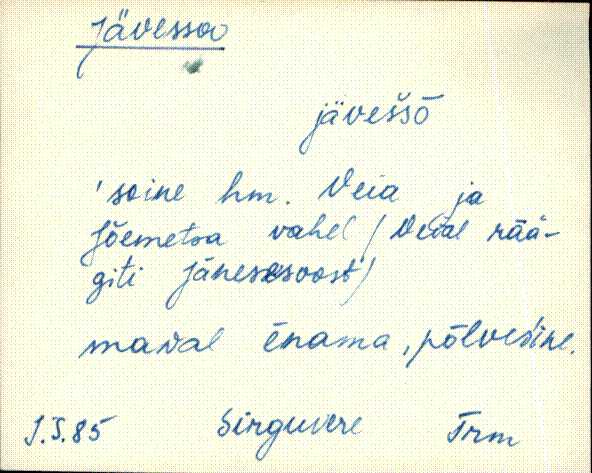 Jävessoo
jäveššō
'soine hm. Veia ja
Jõemetsa vahel (Veial rää-
giti jänesesoost)
madal ēnama, põlvedine.
J.S.85 Sirguvere Trm